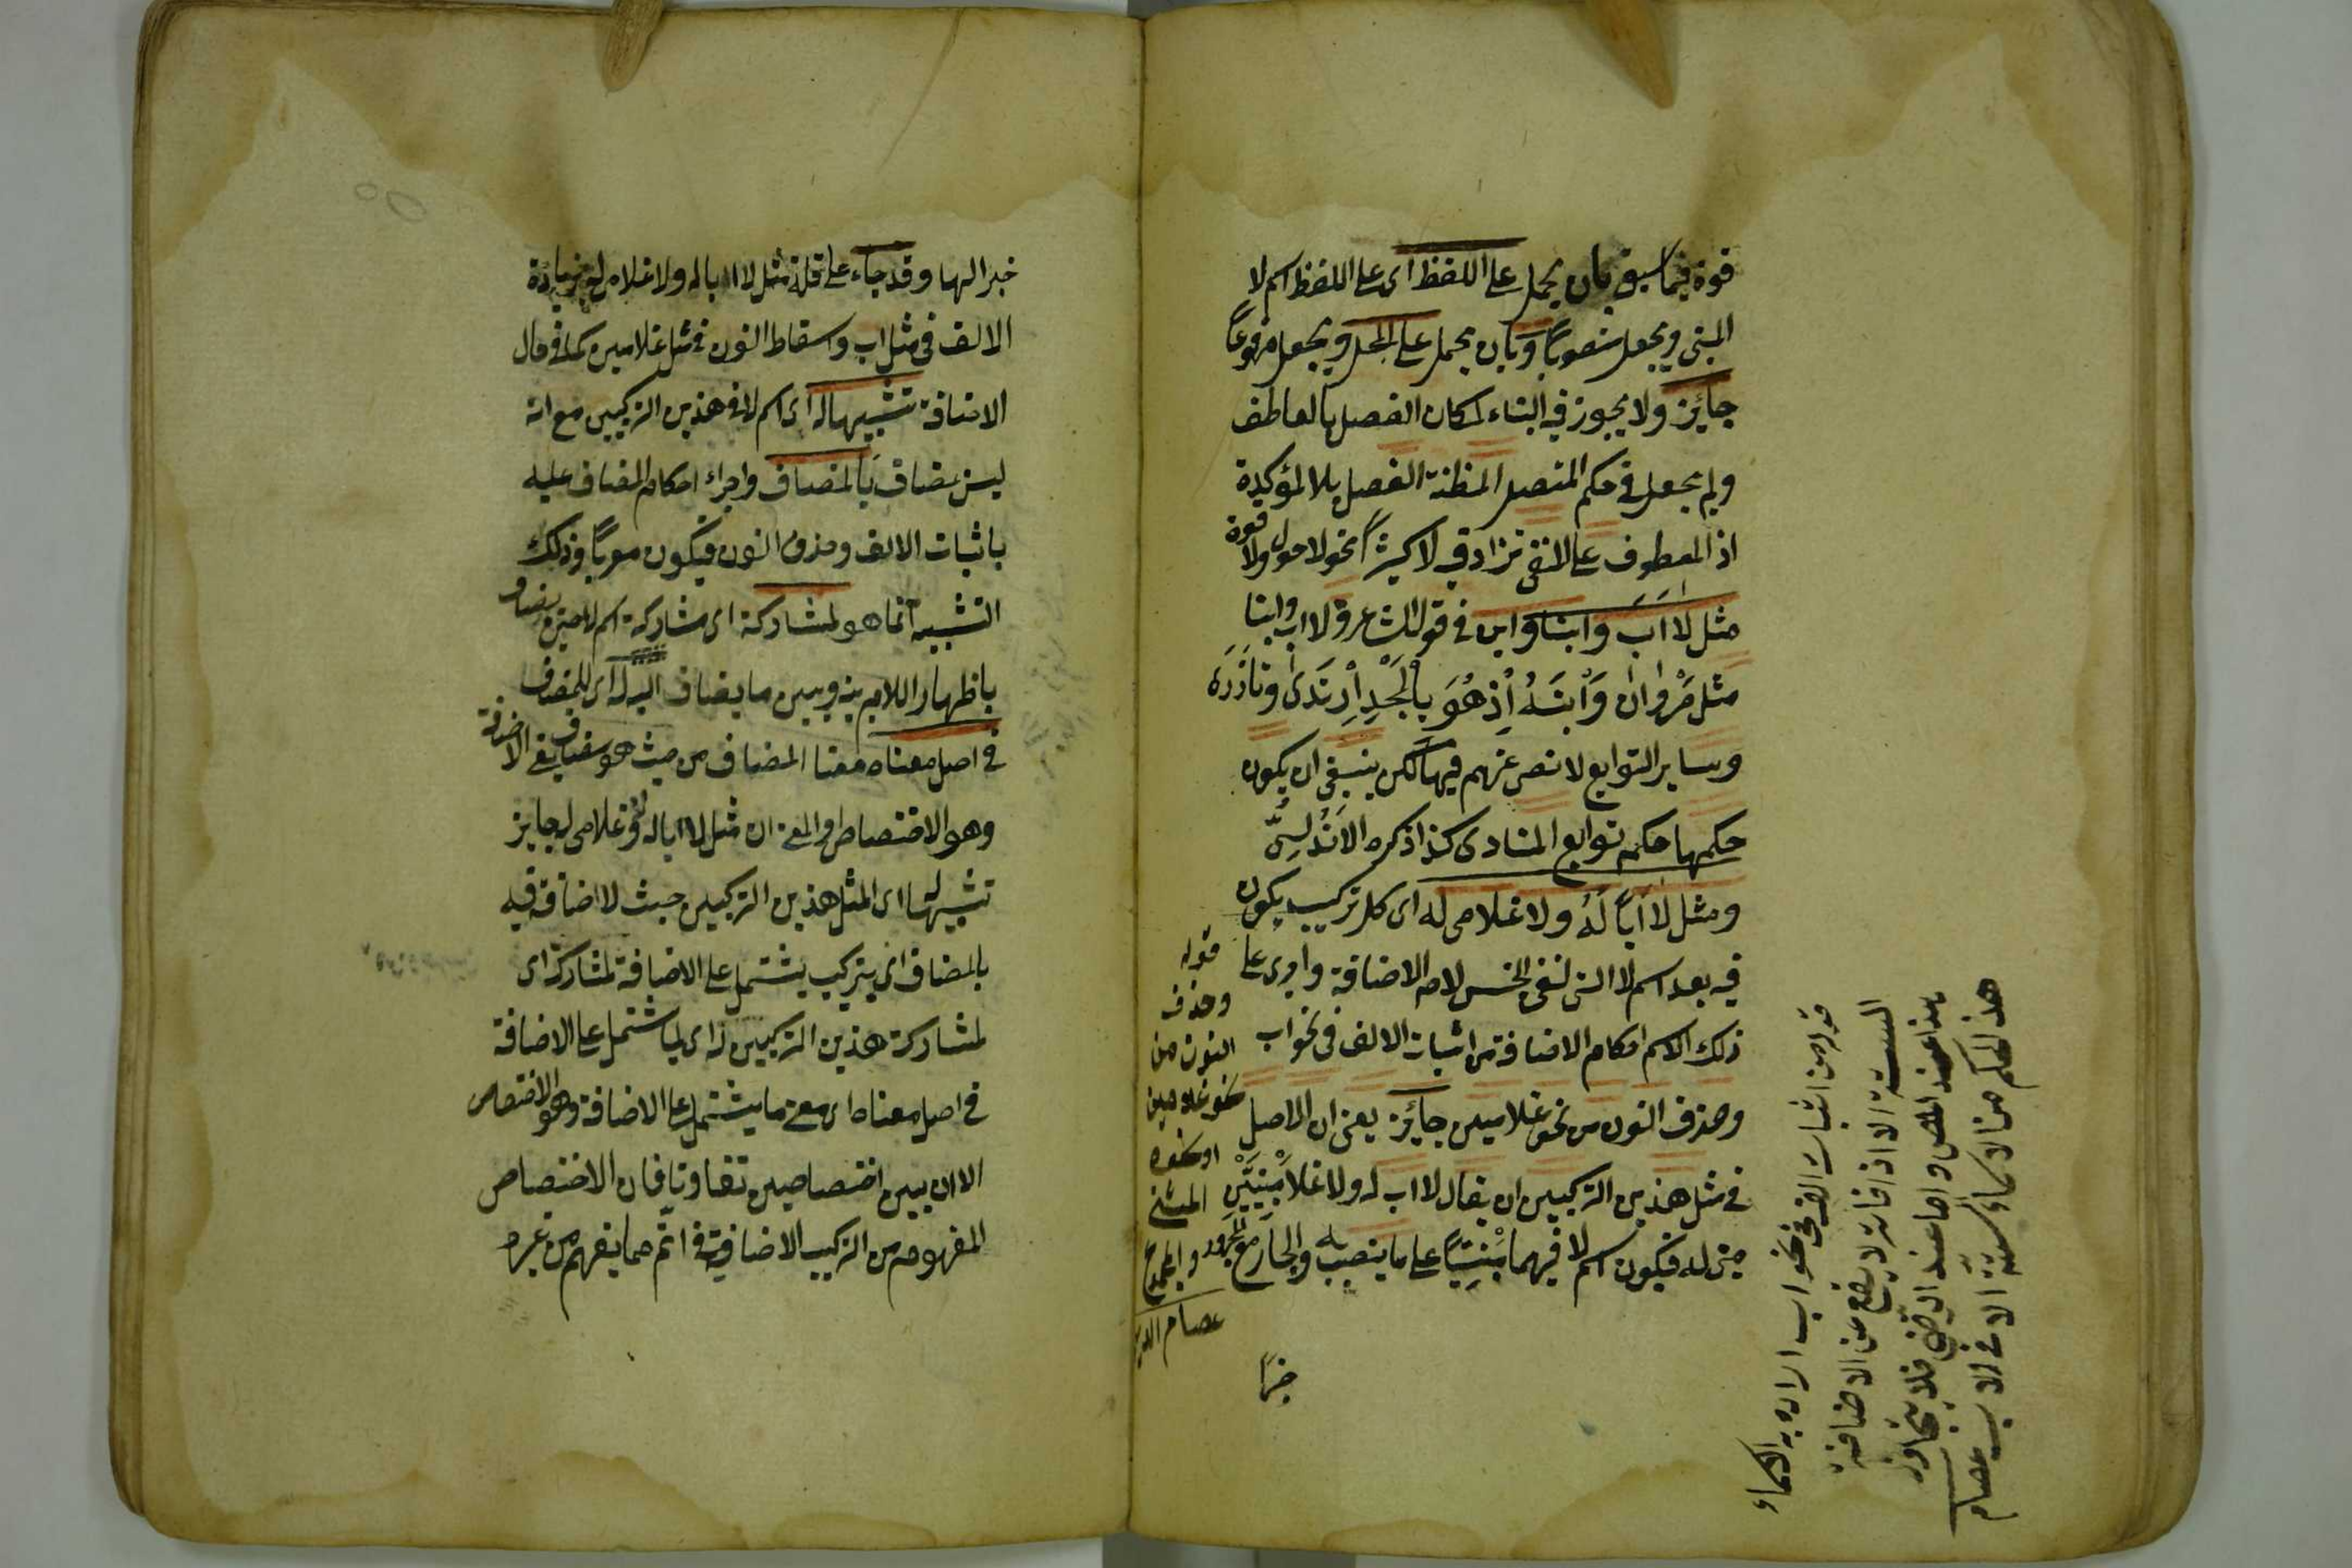 قوة فيما سبق بان يحمل على اللفظ اى على اللفظ اسم لا
المبنى ويجعل منصوباً وبان يحمل على المحل ويجعل مرفوعاً
جائز ولا يجوز فيه البناء لمكان الفصل بالعاطف
ولم يجعل فى حكم المتصل لمظنة الفصل بلا المؤكدة
اذ المعطوف على المنفى تزاد فيه لا كثيراً نحو لا حول ولا قوة
مثل لا اَبَ وَابناً وابن فى قول الشاعر ولا اب وابنا
مثل مَرْوان وَابنَهُ اِذ هُوَ بِالمجدِ اِرتَدى وتاَزَّرَه
وساير التوابع لا نص عنهم فيها لكن ينبغى ان يكون
حكمها حكم توابع المنادى كذا ذكره الاَندُلسِىّ
ومثل لا اَباً لَهُ ولا غلامى له اى كل تركيب يكون
فيه بعد اسم لا التى لنفى الجنس لام الاضافة واجرى على
ذلك الاسم احكام الاضافة من اثبات الالف فى نحو اب
وحذف النون من نحو غلامين جائز يعنى ان الاصل
فى مثل هذين التركيبين ان يقال لا اب له ولا غلامَيْنِ
له فيكون اسم لا فيهما مَبْنيّاً على ما ينصب به والجار مع المجرور
خبرًا
قوله
وحذف
النون من
نحو غلامين
او نحوه
المثنى
والجمع
عصام الدين
قوله من اثبات الالف فى نحو اب اراد به الاسماء
الستة الا اذ فانه لا يقطع عن الاضافة
هذا عند المص واما عند الرضى فلا يتجاوز
هذا الحكم من الاسماء الستة الا فى الاب عصام
خبر الها وقد جاء على قلة مثل لا ابا له ولا غلامى له بزيادة
الالف فى مثل اب واسقاط النون فى مثل غلامين كما فى حال
الاضافة تشبيها له اى اسم لا فى هذين التركيبين مع انه
ليس بمضاف بالمضاف واجراء احكام المضاف عليه
باثبات الالف وحذف النون فيكون معرباً وذلك
التشبيه انما هو لمشاركة اى مشاركة اسم لا حين يضاف
باظهار اللام بينه وبين ما يضاف اليه له اى للمضاف
فى اصل معناه معنا المضاف من حيث هو مضاف يعنى الاضافة
وهو الاختصاص والمعنى ان مثل لا ابا له ولا غلامى له جايز
تشبيها له اى لمثل هذين التركيبين حيث لا اضافة فيه
بالمضاف اى بتركيب يشتمل على الاضافة لمشاركة اى
لمشاركة هذين التركيبين له اى لما يشتمل على الاضافة
فى اصل معناه اى معنى ما يشتمل على الاضافة وهو الاختصاص
الا ان بين اختصاصين تفاوتا فان الاختصاص
المفهوم من التركيب الاضافى اتم مما يفهم من غيره